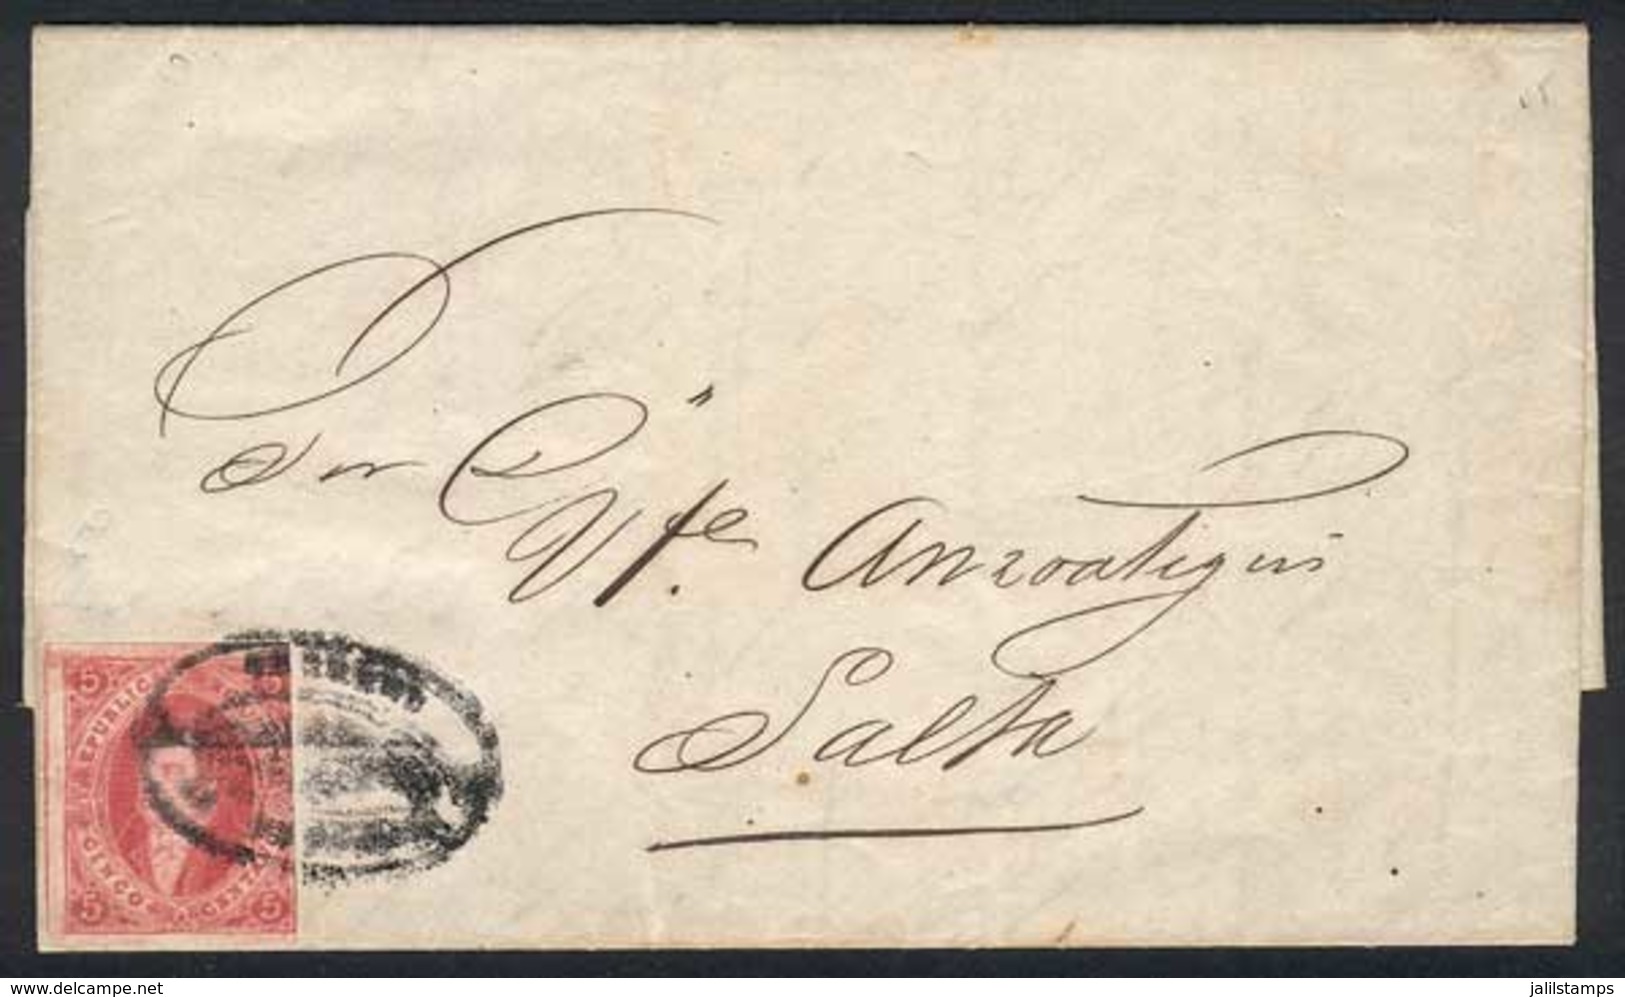 Sor Dn
Vte. Anzoategui
Salta
5
REPUBLICA
5
CINCO CENTAVOS
5
5
delcampe.net
jalilstamps